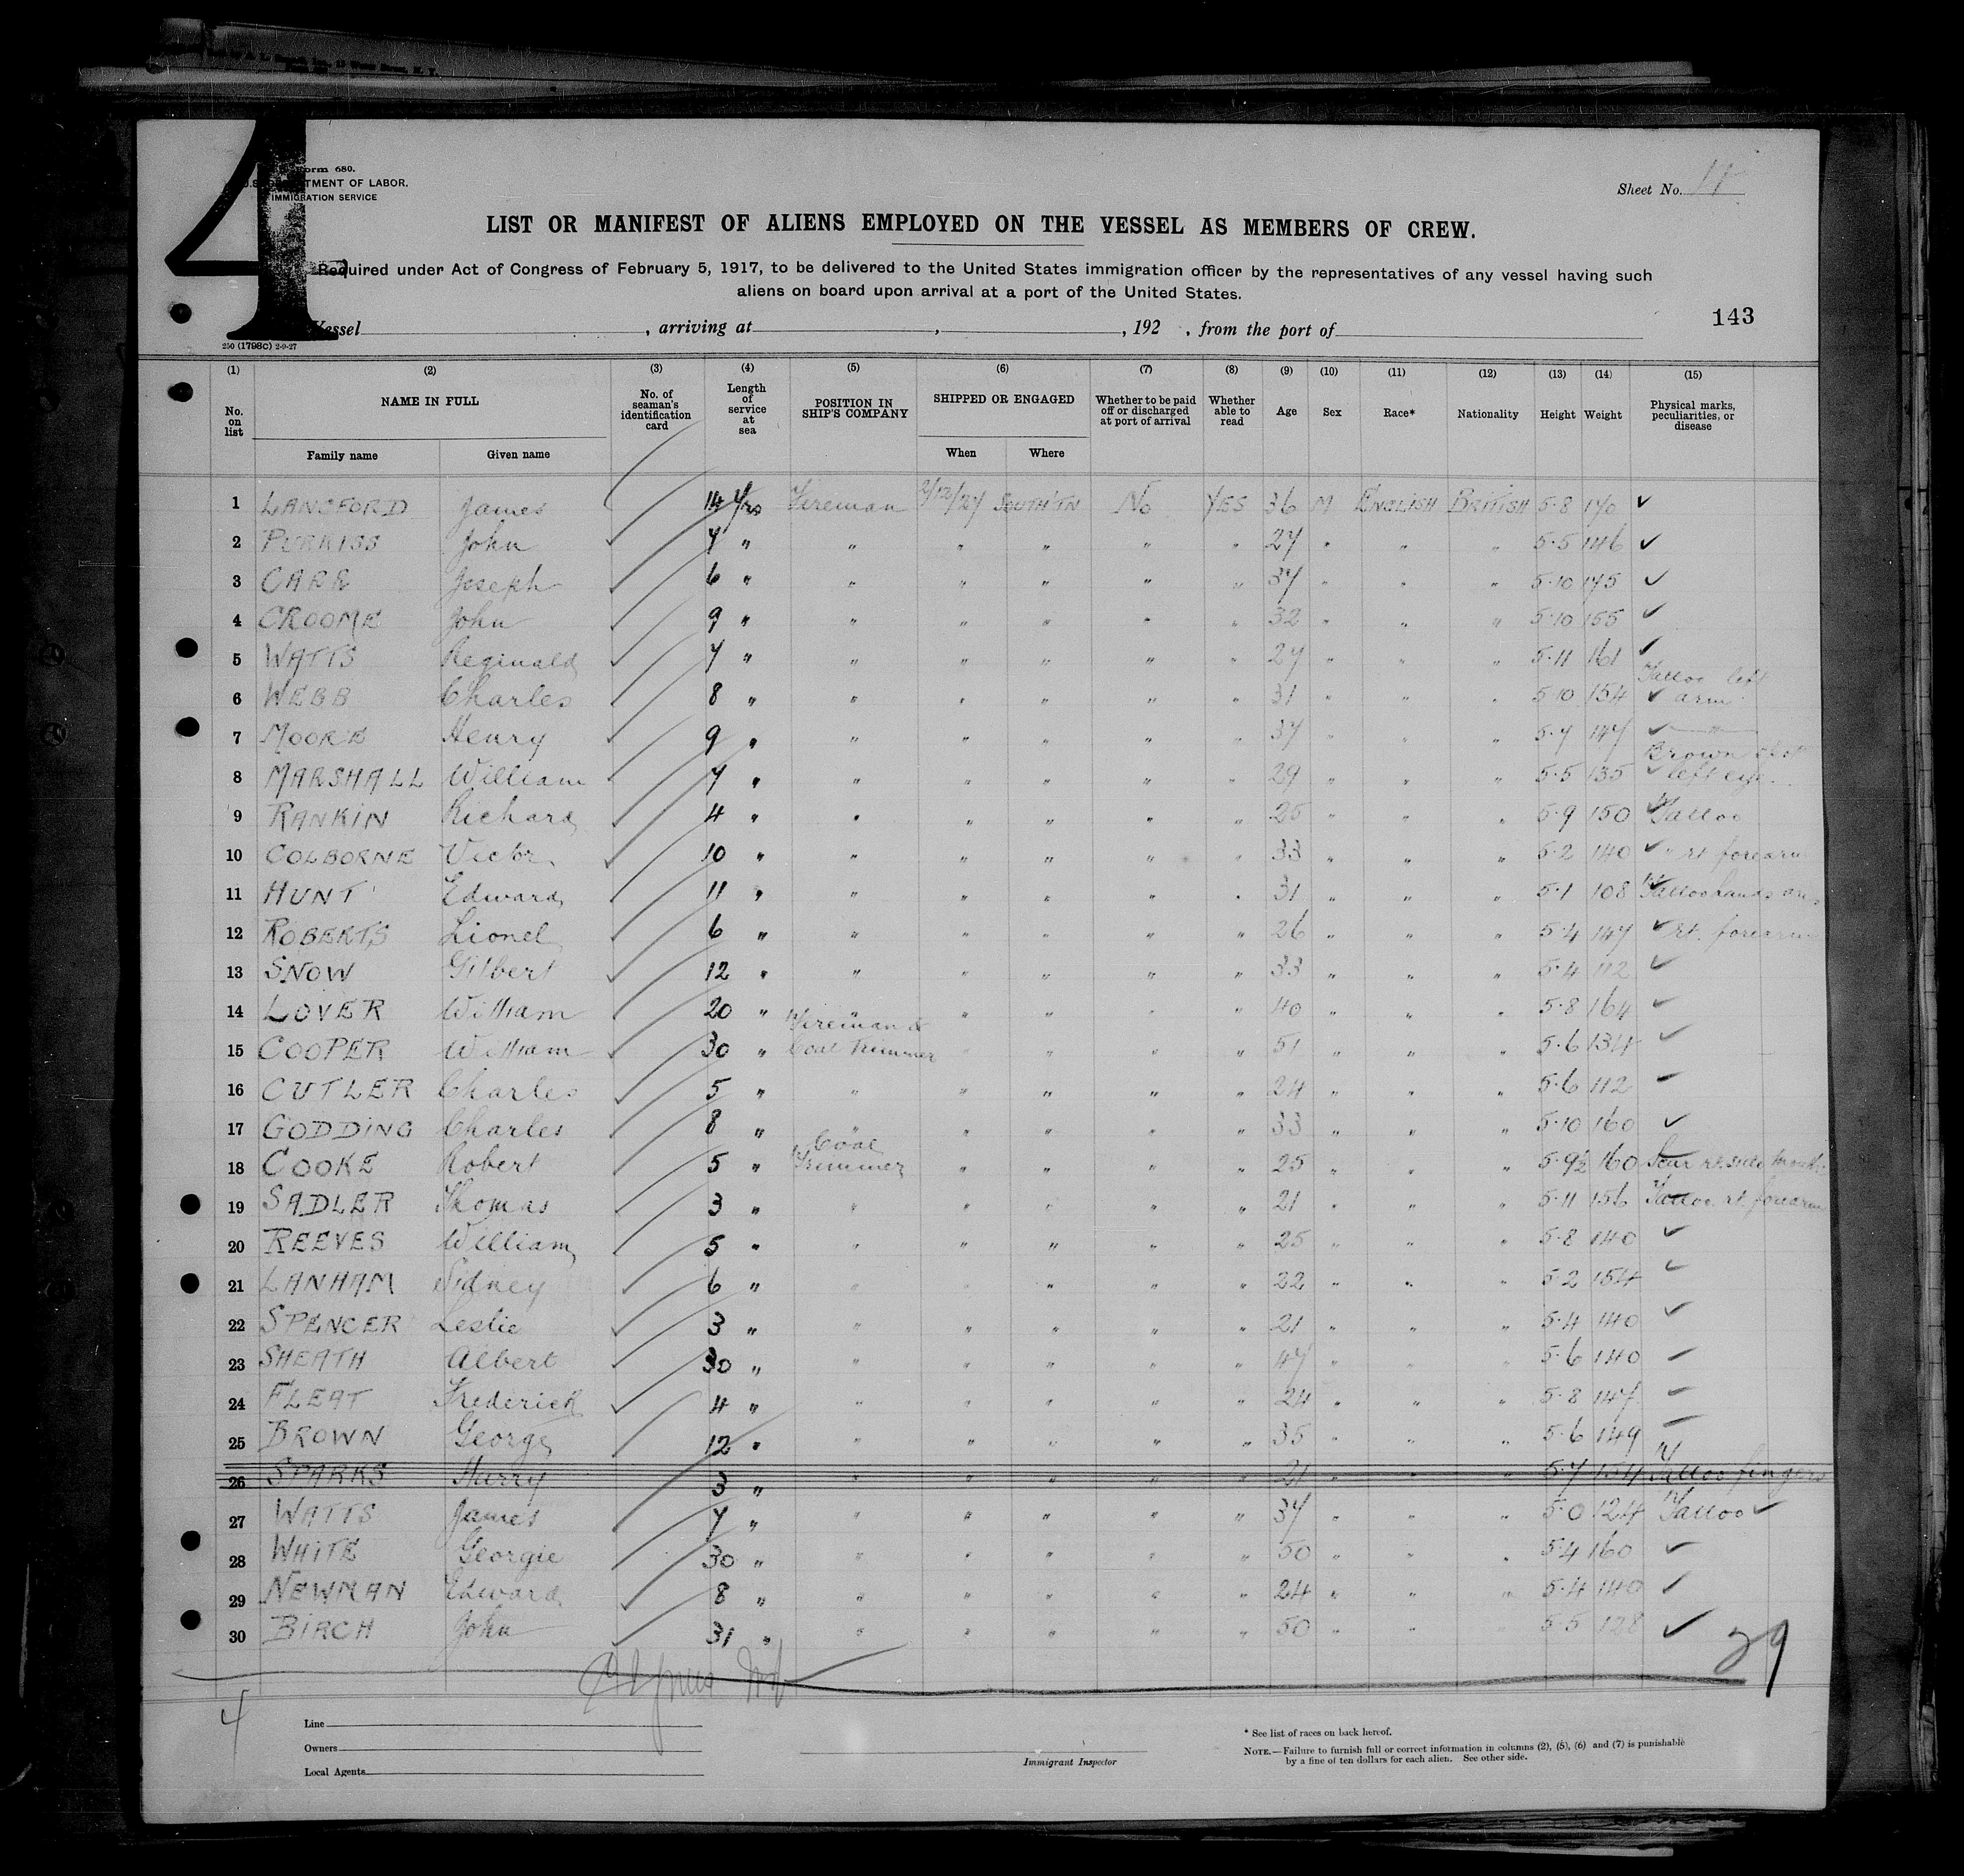 4
Form 680.
U.S. DEPARTMENT OF LABOR.
IMMIGRATION SERVICE
Sheet No. 11
LIST OR MANIFEST OF ALIENS EMPLOYED ON THE VESSEL AS MEMBERS OF CREW.
Required under Act of Congress of February 5, 1917, to be delivered to the United States immigration officer by the representatives of any vessel having such
aliens on board upon arrival at a port of the United States.
Vessel , arriving at , , 192 , from the port of
143
250 (1798C) 2-9-27
(1) (2) (3) (4) (5) (6) (7) (8) (9) (10) (11) (12) (13) (14) (15)
No. on list NAME IN FULL No. of seaman's identification card Length of service at sea POSITION IN SHIP'S COMPANY SHIPPED OR ENGAGED Whether to be paid off or discharged at port of arrival Whether able to read Age Sex Race* Nationality Height Weight Physical marks, peculiarities, or disease
Family name Given name When Where
1 LANGFORD James 14 Yrs Fireman 2/12/27 SOUTH'TN No YES 36 M ENGLISH BRITISH 5·8 170 ✓
2 PURKISS John 7 " " " " " " 27 " " " 5·5 146 ✓
3 CARE Joseph 6 " " " " " " 37 " " " 5·10 175 ✓
4 CROOME John 9 " " " " " " 32 " " " 5·10 155 ✓
5 WATTS Reginald 7 " " " " " " 27 " " " 5·11 161 ✓
6 WEBB Charles 8 " " " " " " 31 " " " 5·10 154 ✓ Tattoo left arm
7 MOORE Henry 9 " " " " " " 37 " " " 5·7 147 ✓ "
8 MARSHALL William 7 " " " " " " 29 " " " 5·5 135 ✓ Brown left eye.
9 RANKIN Richard 4 " " " " " " 25 " " " 5·9 150 ✓ Tattoo
10 COLBORNE Victor 10 " " " " " " 33 " " " 5·2 140 ✓ " rt forearm
11 HUNT Edward 11 " " " " " " 31 " " " 5·1 108 Tattoo hands
12 ROBERTS Lionel 6 " " " " " " 26 " " " 5·4 147 ✓ rt. forearm
13 SNOW Gilbert 12 " " " " " " 33 " " " 5·4 112 ✓
14 LOVER William 20 " " " " " " 40 " " " 5·8 164 ✓
15 COOPER William 30 " Fireman & Coal Trimmer " " " " 51 " " " 5·6 134 ✓
16 CUTLER Charles 5 " " " " " " 24 " " " 5·6 112 ✓
17 GODDING Charles 8 " " " " " " 33 " " " 5·10 160 ✓
18 COOKE Robert 5 " Coal Trimmer " " " " 25 " " " 5·9½ 160 Scar rt. side mouth
19 SADLER Thomas 3 " " " " " " 21 " " " 5·11 156 Tattoo rt forearm
20 REEVES William 5 " " " " " " 25 " " " 5·8 140 ✓
21 LANHAM Sidney 6 " " " " " " 22 " " " 5·2 154 ✓
22 SPENCER Leslie 3 " " " " " " 21 " " " 5·4 140 ✓
23 SHEATH Albert 30 " " " " " " 47 " " " 5·6 140 ✓
24 FLEAT Frederick 4 " " " " " " 24 " " " 5·8 147 ✓
25 BROWN George 12 " " " " " " 35 " " " 5·6 149 ✓
26 SPARKS Harry 3 " " " " " " 21 " " " 5·7 154 Tattoo fingers
27 WATTS James 7 " " " " " " 37 " " " 5·0 124 Tattoo ✓
28 WHITE Georgie 30 " " " " " " 50 " " " 5·4 160 ✓
29 NEWMAN Edward 8 " " " " " " 24 " " " 5·4 140 ✓
30 BIRCH John 31 " " " " " " 50 " " " 5·5 128 ✓
29
4
Line
Owners
Local Agents
Immigrant Inspector
* See list of races on back hereof.
NOTE.—Failure to furnish full or correct information in columns (2), (5), (6) and (7) is punishable
by a fine of ten dollars for each alien. See other side.